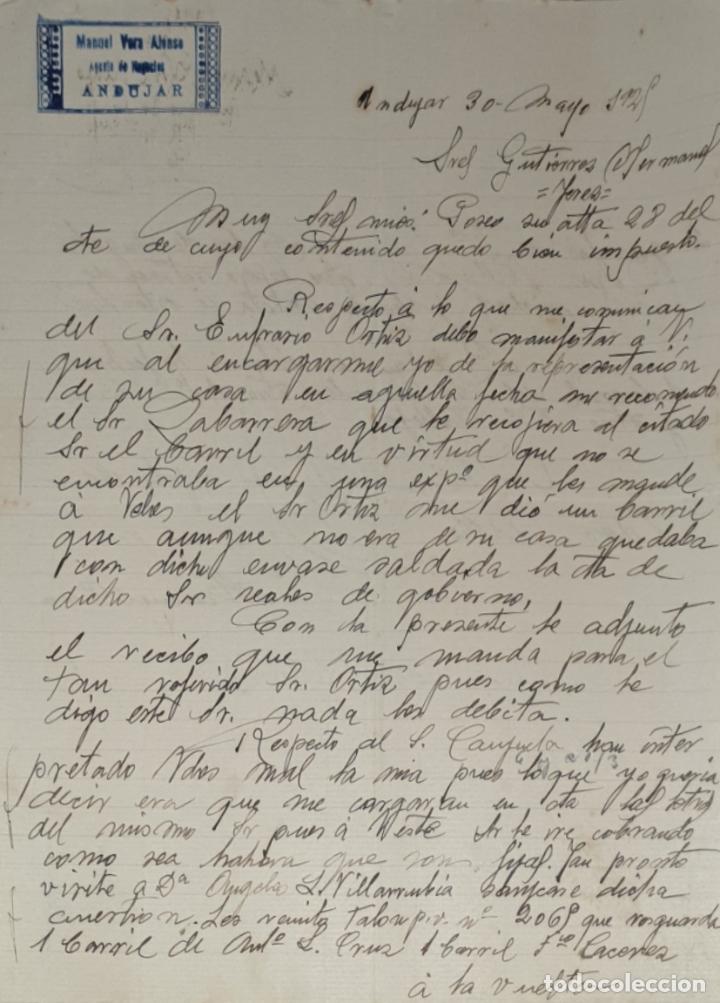 Manuel Vera Alonso
Agente de Negocios
ANDUJAR
Andujar 30- Mayo 192
Sres Gutierrez Hermanos
=Jerez=
Muy Sres mios: Poseo su atta 28 del
cte de cuyo contenido quedo bien impuesto.
Respecto á lo que me comunican
del Sr. Eufrasio Ortiz debo manifestar á V.
que al encargarme yo de la representación
de su casa en aquella fecha me recomendo
el Sr Labarrera que le recojiera al citado
Sr el barril y en virtud que no se
encontraba en una expº que les mandé
á Vdes el Sr Ortiz me dió un barril
que aunque no era de su casa quedaba
con dicho envase saldada la cta de
dicho Sr
Con la presente le adjunto
el recibo que me manda para el
tan referido Sr. Ortiz pues como le
digo este Sr. nada les debita.
Respecto al S. han inter
pretado Vdes mal la mia pues lo que yo queria
decir era que me cargaran en cta las
del mismo Sr pues á este Sr le iré cobrando
como sea que son Tan pronto
visite a Dª Angeles L. Villarrubia dicha
cuestion. Les remito Talon p.v. nº 2069 que resguarda
1 barril de Antº L. Cruz 1 barril Fco Caceres
á la vuelta
todocoleccion